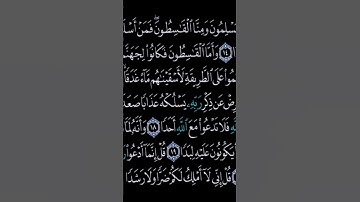 ـسْلِمُونَ وَمِنَّا الْقَاسِطُونَ ۖ فَمَنْ أَسْلَـ
﴿١٤﴾ وَأَمَّا الْقَاسِطُونَ فَكَانُوا لِجَهَنَّـ
ـمُوا عَلَى الطَّرِيقَةِ لَأَسْقَيْنَاهُم مَّاءً غَدَقًا
ـرِضْ عَن ذِكْرِ رَبِّهِ يَسْلُكْهُ عَذَابًا صَعَدًا
ـهِ فَلَا تَدْعُوا مَعَ اللَّهِ أَحَدًا ﴿١٨﴾ وَأَنَّهُ لَمَّا
يَكُونُونَ عَلَيْهِ لِبَدًا ﴿١٩﴾ قُلْ إِنَّمَا أَدْعُو
قُلْ إِنِّي لَا أَمْلِكُ لَكُمْ ضَرًّا وَلَا رَشَدًا